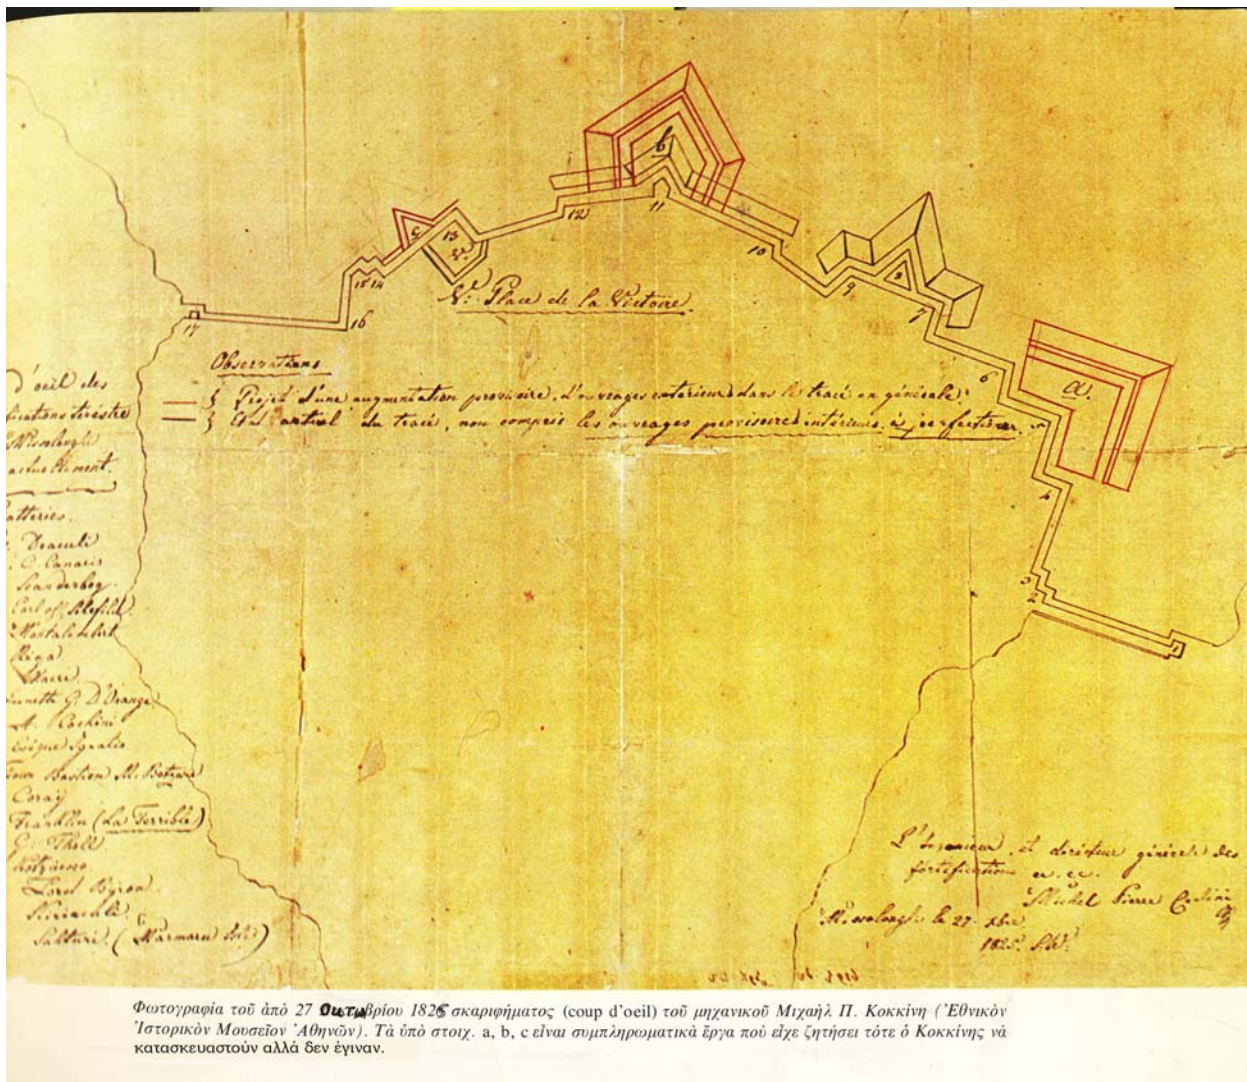 b
12
11
c
13
10
15 14
8
9
7
Nt. Place de la Victoire
17
16
a.
6
5
4
3
2
1
Observations
} Projet d'une augmentation provisoire, d'ouvrages exterieurs dans le tracé en générale;
} Etat actuel du tracé, non compris les ouvrages provisoires intérieurs, à perfectioner.
d'oeil des
Missolonghi
actuellement.
Batteries.
Draculi
C. Canaris
Skanderbeg.
Montalembert
Riga
Macri.
G. D'Orange
A. Cochini
Ignatio
Bastion M. Botzari
Coray
Franklin (La Terrible)
G.
Lord Byron.
Kiriaculi.
Sakturi. (Marmaru
L'Ingenieur, et directeur générale des
fortifications
Michel Pierre Cochini
Missolonghi le 27. Xbre
1825. S.V.
Φωτογραφία τοῦ ἀπὸ 27 Οκτωβρίου 1825 σκαριφήματος (coup d'oeil) τοῦ μηχανικοῦ Μιχαὴλ Π. Κοκκίνη (Ἐθνικὸν
Ἱστορικὸν Μουσεῖον Ἀθηνῶν). Τὰ ὑπὸ στοιχ. a, b, c εἶναι συμπληρωματικὰ ἔργα ποὺ εἶχε ζητήσει τότε ὁ Κοκκίνης νὰ
κατασκευαστούν αλλά δεν έγιναν.